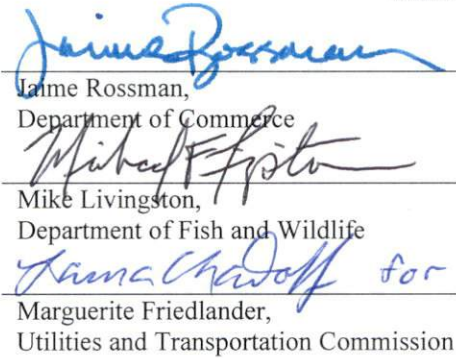 Jaime Rossman
Jaime Rossman,
Department of Commerce
Mike Livingston,
Department of Fish and Wildlife
for
Marguerite Friedlander,
Utilities and Transportation Commission